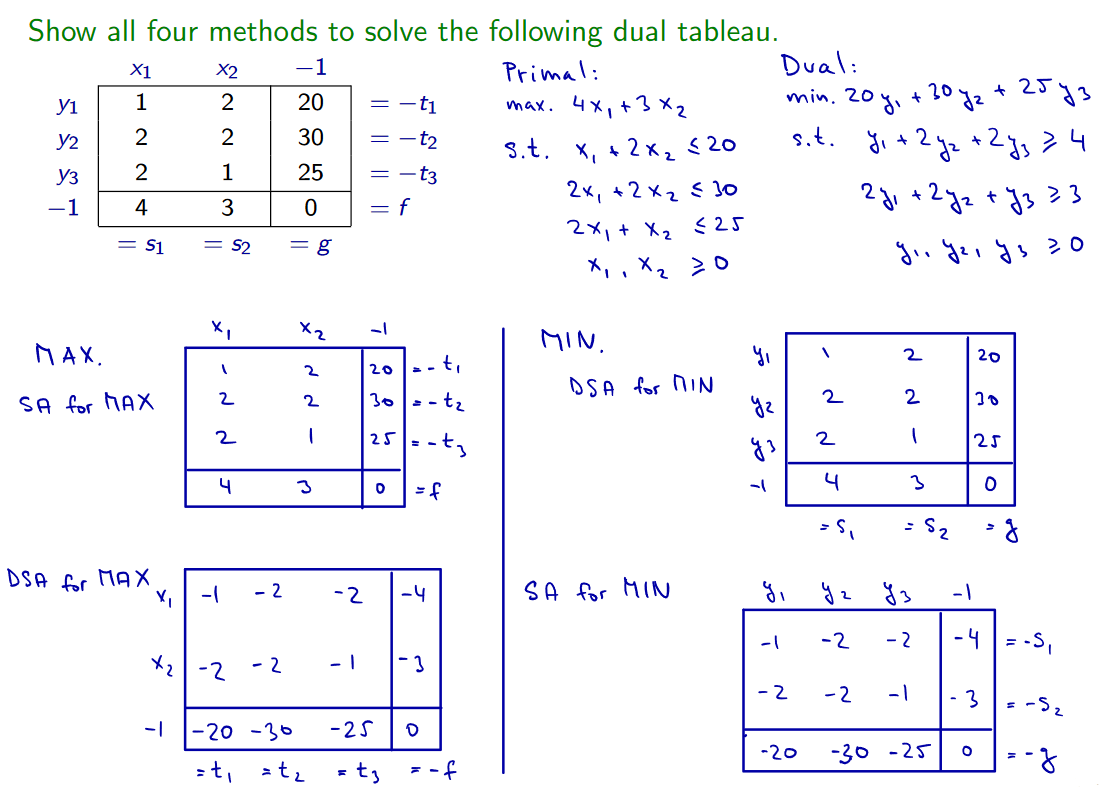 Show all four methods to solve the following dual tableau.
x1 x2 −1
y1 1 2 20 = −t1
y2 2 2 30 = −t2
y3 2 1 25 = −t3
−1 4 3 0 = f
= s1 = s2 = g
Primal:
max. 4x1 + 3x2
s.t. x1 + 2x2 ≤ 20
2x1 + 2x2 ≤ 30
2x1 + x2 ≤ 25
x1, x2 ≥ 0
Dual:
min. 20y1 + 30y2 + 25y3
s.t. y1 + 2y2 + 2y3 ≥ 4
2y1 + 2y2 + y3 ≥ 3
y1, y2, y3 ≥ 0
MAX.
SA for MAX
x1 x2 -1
1 2 20 = -t1
2 2 30 = -t2
2 1 25 = -t3
4 3 0 = f
MIN.
DSA for MIN
y1 1 2 20
y2 2 2 30
y3 2 1 25
-1 4 3 0
= s1 = s2 = g
DSA for MAX
x1 -1 -2 -2 -4
x2 -2 -2 -1 -3
-1 -20 -30 -25 0
= t1 = t2 = t3 = -f
SA for MIN
y1 y2 y3 -1
-1 -2 -2 -4 = -s1
-2 -2 -1 -3 = -s2
-20 -30 -25 0 = -g